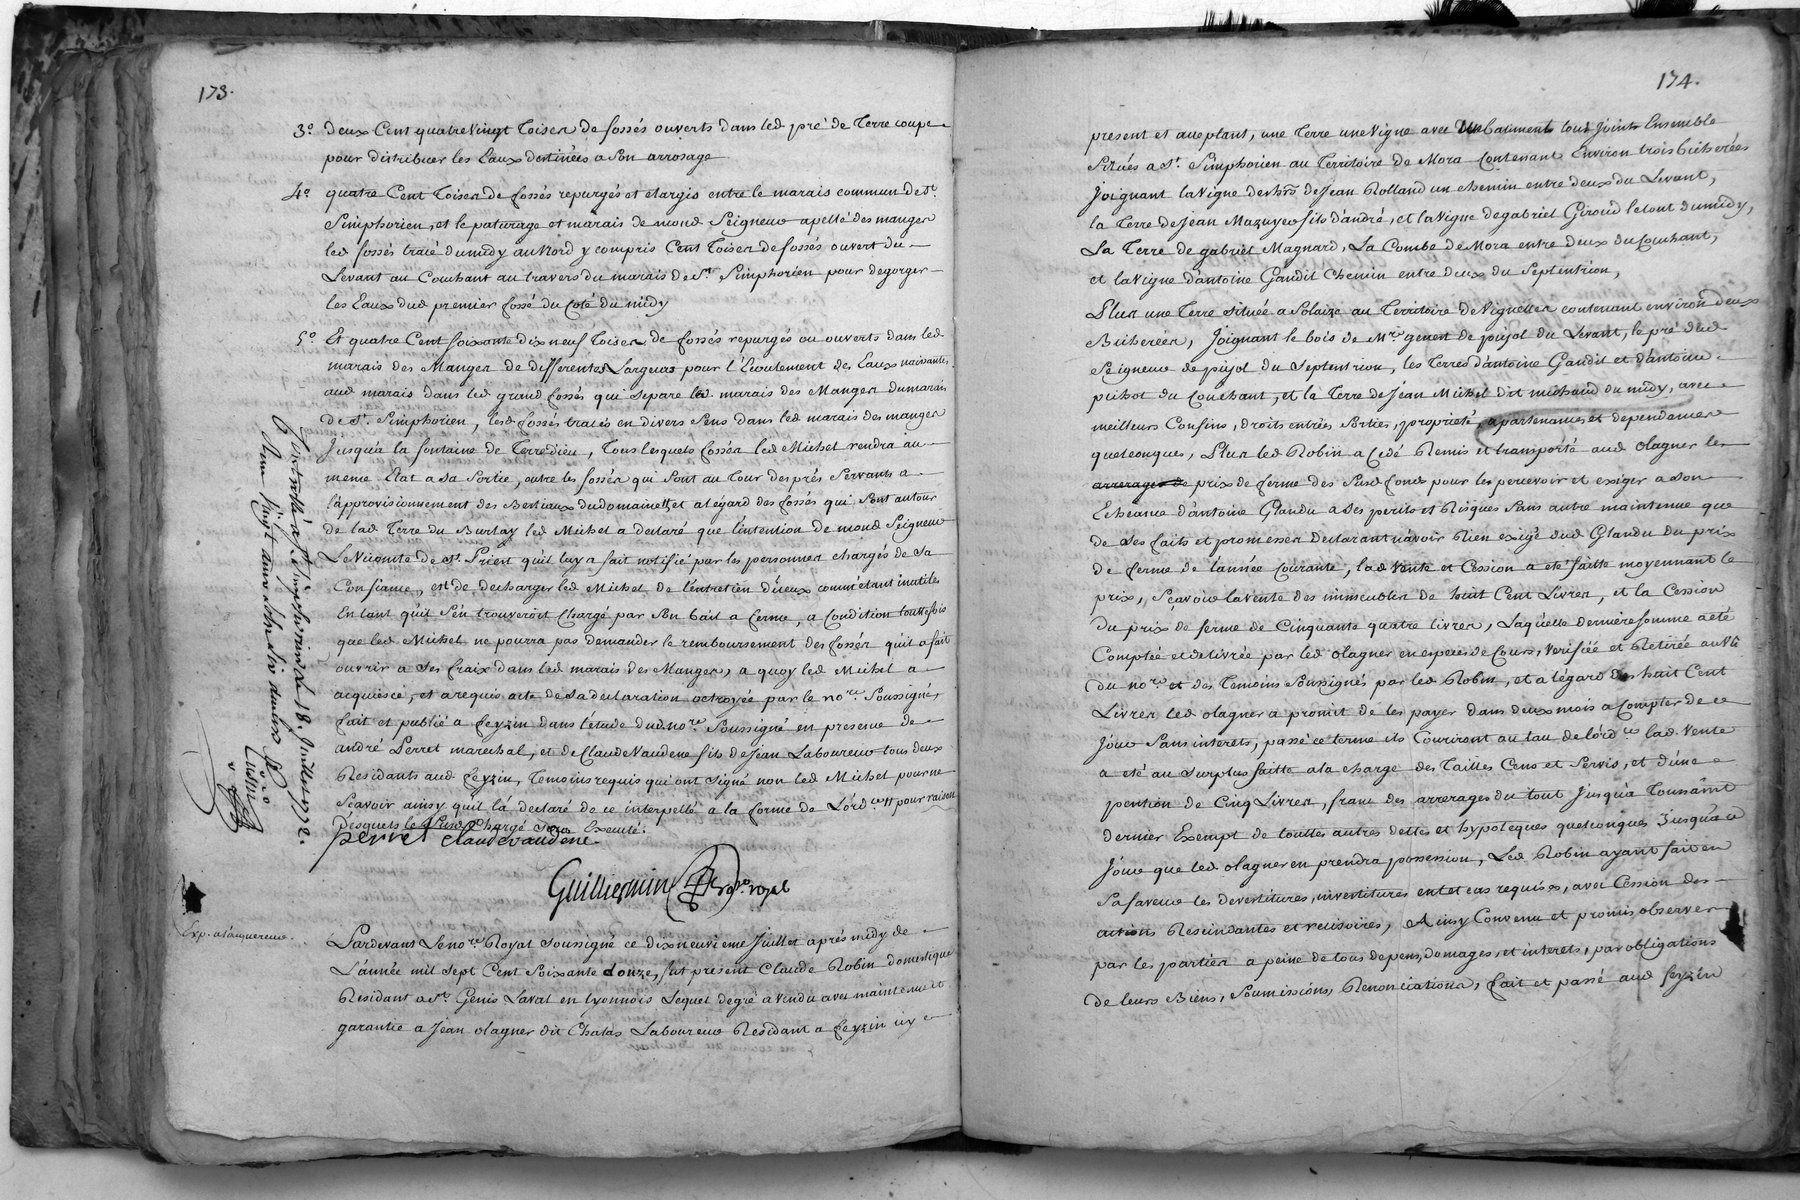 173.
3.º deux Cent quatre Vingt Toises de fossés ouverts dans led pré de Terre coupe
pour distribuer les Eaux destinées a Son arrosage
4.º quatre Cent Toises de fossés repurgés et elargis entre le marais commun de St.
Simphorien, et le paturage et marais de mond Seigneur apellé des manges
led fossés tracé du midy au Nord y compris Cent Toises de fossés ouvert du
Levant au Couchant au travers du marais de St. Simphorien pour degorger
les Eaux dud premier fossé du Coté du midy
5.º Et quatre Cent Soixante dix neuf Toises de fossés repurgés ou ouverts dans led
marais des Manges de differentes Largeurs pour l'Ecoulement des Eaux naissantes
aud marais dans led grand fossés qui Separe led marais des Manges du marais
de St. Simphorien, lesd fossés tracés en divers Sens dans led marais des manges
Jusqu'a la fontaine de Terre dieu, Tous lesquels fossés led Michel rendra au
meme Etat a Sa Sortie, outre les fossés qui Sont au Tour des prés Servants a
l'approvisionnement des Bestiaux du domaine et a l'égard des fossés qui Sont autour
de lad Terre du Burlay led Michel a declaré que l'intention de mond Seigneur
Le Vicomte de St. Priest qu'il luy a fait notifié par les personnes chargés de Sa
Confiance, est de decharger led Michel de l'entretien d'iceux comm'étant inutiles
En tant qu'il S'en trouveroit Chargé par Son bail a ferme, a Condition touttefois
que led Michel ne pourra pas demander le remboursement des fossés qu'il a fait
ouvrir a Ses fraix dans led marais des Manges, a quoy led Michel a
acquiescé, et a requis acte de Sa declaration octroyée par le nore. Soussigné,
fait et publié a feyzin dans l'étude dud nore. Soussigné en presence de
andré Perret marechal, et de Claude Vaudene fils de Jean Laboureur tous deux
Residants aud feyzin, Temoins requis qui ont Signé non led Michel pour ne
Sçavoir ainsy qu'il l'a declaré de ce interpellé a la forme de L'ord.ce pour raison
desquels le Susd Chargé Sera Executé.
perret Claude vaudene.
Guilliermin nore. royal
Controllé a St. Simphorien le 18. Juillet 1772.
Exp. a l'acquereur.
Pardevant Le nore Royal Soussigné ce dixneuvieme Juillet après midy de
L'année mil Sept Cent Soixante douze, fut present Claude Robin domestique
Residant a St. Genis Laval en Lyonnois Lequel de gré a vendu avec maintenue et
garantie a Jean olagner dit Chalas Laboureur Residant a feyzin icy
174.
present et acceptant, une Terre une Vigne avec Un batiment tous Joints Ensemble
Situés a St. Simphorien au Territoire de Mora Contenant Environ trois bicherées
Joignant la Vigne des hrs de Jean Rolland un chemin entre deux du Levant,
la Terre de Jean Mazuyer fils d'andré, et la Vigne de gabriel Giroud le tout du midy,
La Terre de gabriel Magnard, La Combe de Mora entre deux du Couchant,
et la Vigne d'antoine Gandit Chemin entre deux du Septentrion,
Plus une Terre Située a Solaize au Territoire de Vignettes contenant environ deux
Bicherées, Joignant le bois de Mre genest de pujol du Levant, le pré dud
Seigneur de pujol du Septentrion, les Terres d'antoine Gandit et d'antoine
pichot du Couchant, et la Terre de Jean Michel dit michaud du midy, avec
meilleurs Confins, droits entrées Sorties, proprieté, apartenances et dependances
quelconques, Plus led Robin a Cedé Remis et transporté aud olagner les
prix de ferme des Susd fonds pour les percevoir et exiger a Son
Echeance d'antoine Glandu a Ses perils et Risques Sans autre maintenue que
de Ses faits et promesses declarant n'avoir Rien exigé dud Glandu du prix
de ferme de l'année Courante, lad Vente et Cession a eté faitte moyennant le
prix, Sçavoir la Vente des immeubles de huit Cent Livres, et la Cession
du prix de ferme de Cinquante quatre livres, Laquelle derniere Somme a eté
Comptée et delivrée par led olagner en especes de Cours, Verifiée et Retirée au Vû
du nore et des Temoins Soussignés par led Robin, et a l'égard des huit Cent
Livres led olagner a promit de les payer dans deux mois a Compter de ce
Jour Sans interets, passé ce terme ils Couriront au tau de l'ord.ce lad Vente
a eté au Surplus faitte a la charge des Tailles Cens et Servis, et d'une
pention de Cinq Livres, franc des arrerages du tout Jusqu'a Toussaint
dernier Exempt de touttes autres dettes et hypoteques quelconques Jusqu'au
Jour que led olagner en prendra possession, Led Robin ayant fait en
Sa faveur les devestitures, investitures en tel cas requises, avec Cession des
actions Rescindantes et rescisoires, Ainsy Convenu et promis observer
par les parties a peine de tous depens, domages, et interets, par obligations
de leurs Biens, Soumissions, Renonciations, fait et passé aud feyzin